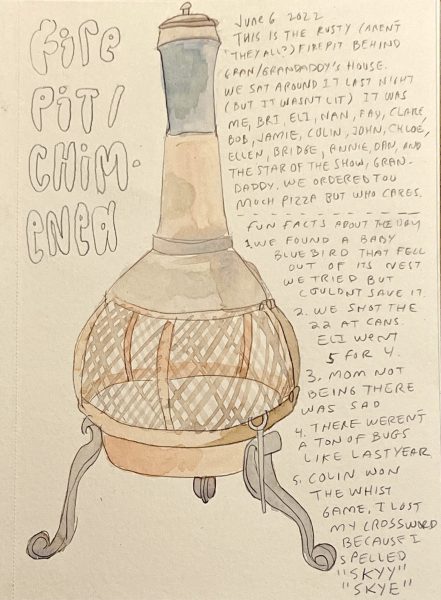 fire
PIT/
CHIM-
ENEA
JUNE 6 2022
THIS IS THE RUSTY (AREN'T
THEY ALL?) FIREPIT BEHIND
GRAN/GRANDADDY'S HOUSE.
WE SAT AROUND IT LAST NIGHT
(BUT IT WASN'T LIT) IT WAS
ME, BRI, ELI, NAN, FAY, CLARE,
BOB, JAMIE, COLIN, JOHN, CHLOE,
ELLEN, BRIDGE, ANNIE, DAN, AND
THE STAR OF THE SHOW, GRAN-
DADDY. WE ORDERED TOO
MUCH PIZZA BUT WHO CARES.
FUN FACTS ABOUT THE DAY
1. WE FOUND A BABY
BLUEBIRD THAT FELL
OUT OF ITS NEST
WE TRIED BUT
COULDN'T SAVE IT.
2. WE SHOT THE
22 AT CANS.
ELI WENT
5 FOR 4.
3. MOM NOT
BEING THERE
WAS SAD
4. THERE WEREN'T
A TON OF BUGS
LIKE LAST YEAR
5. COLIN WON
THE WHIST
GAME, I LOST
MY CROSSWORD
BECAUSE I
SPELLED
"SKYY"
"SKYE"